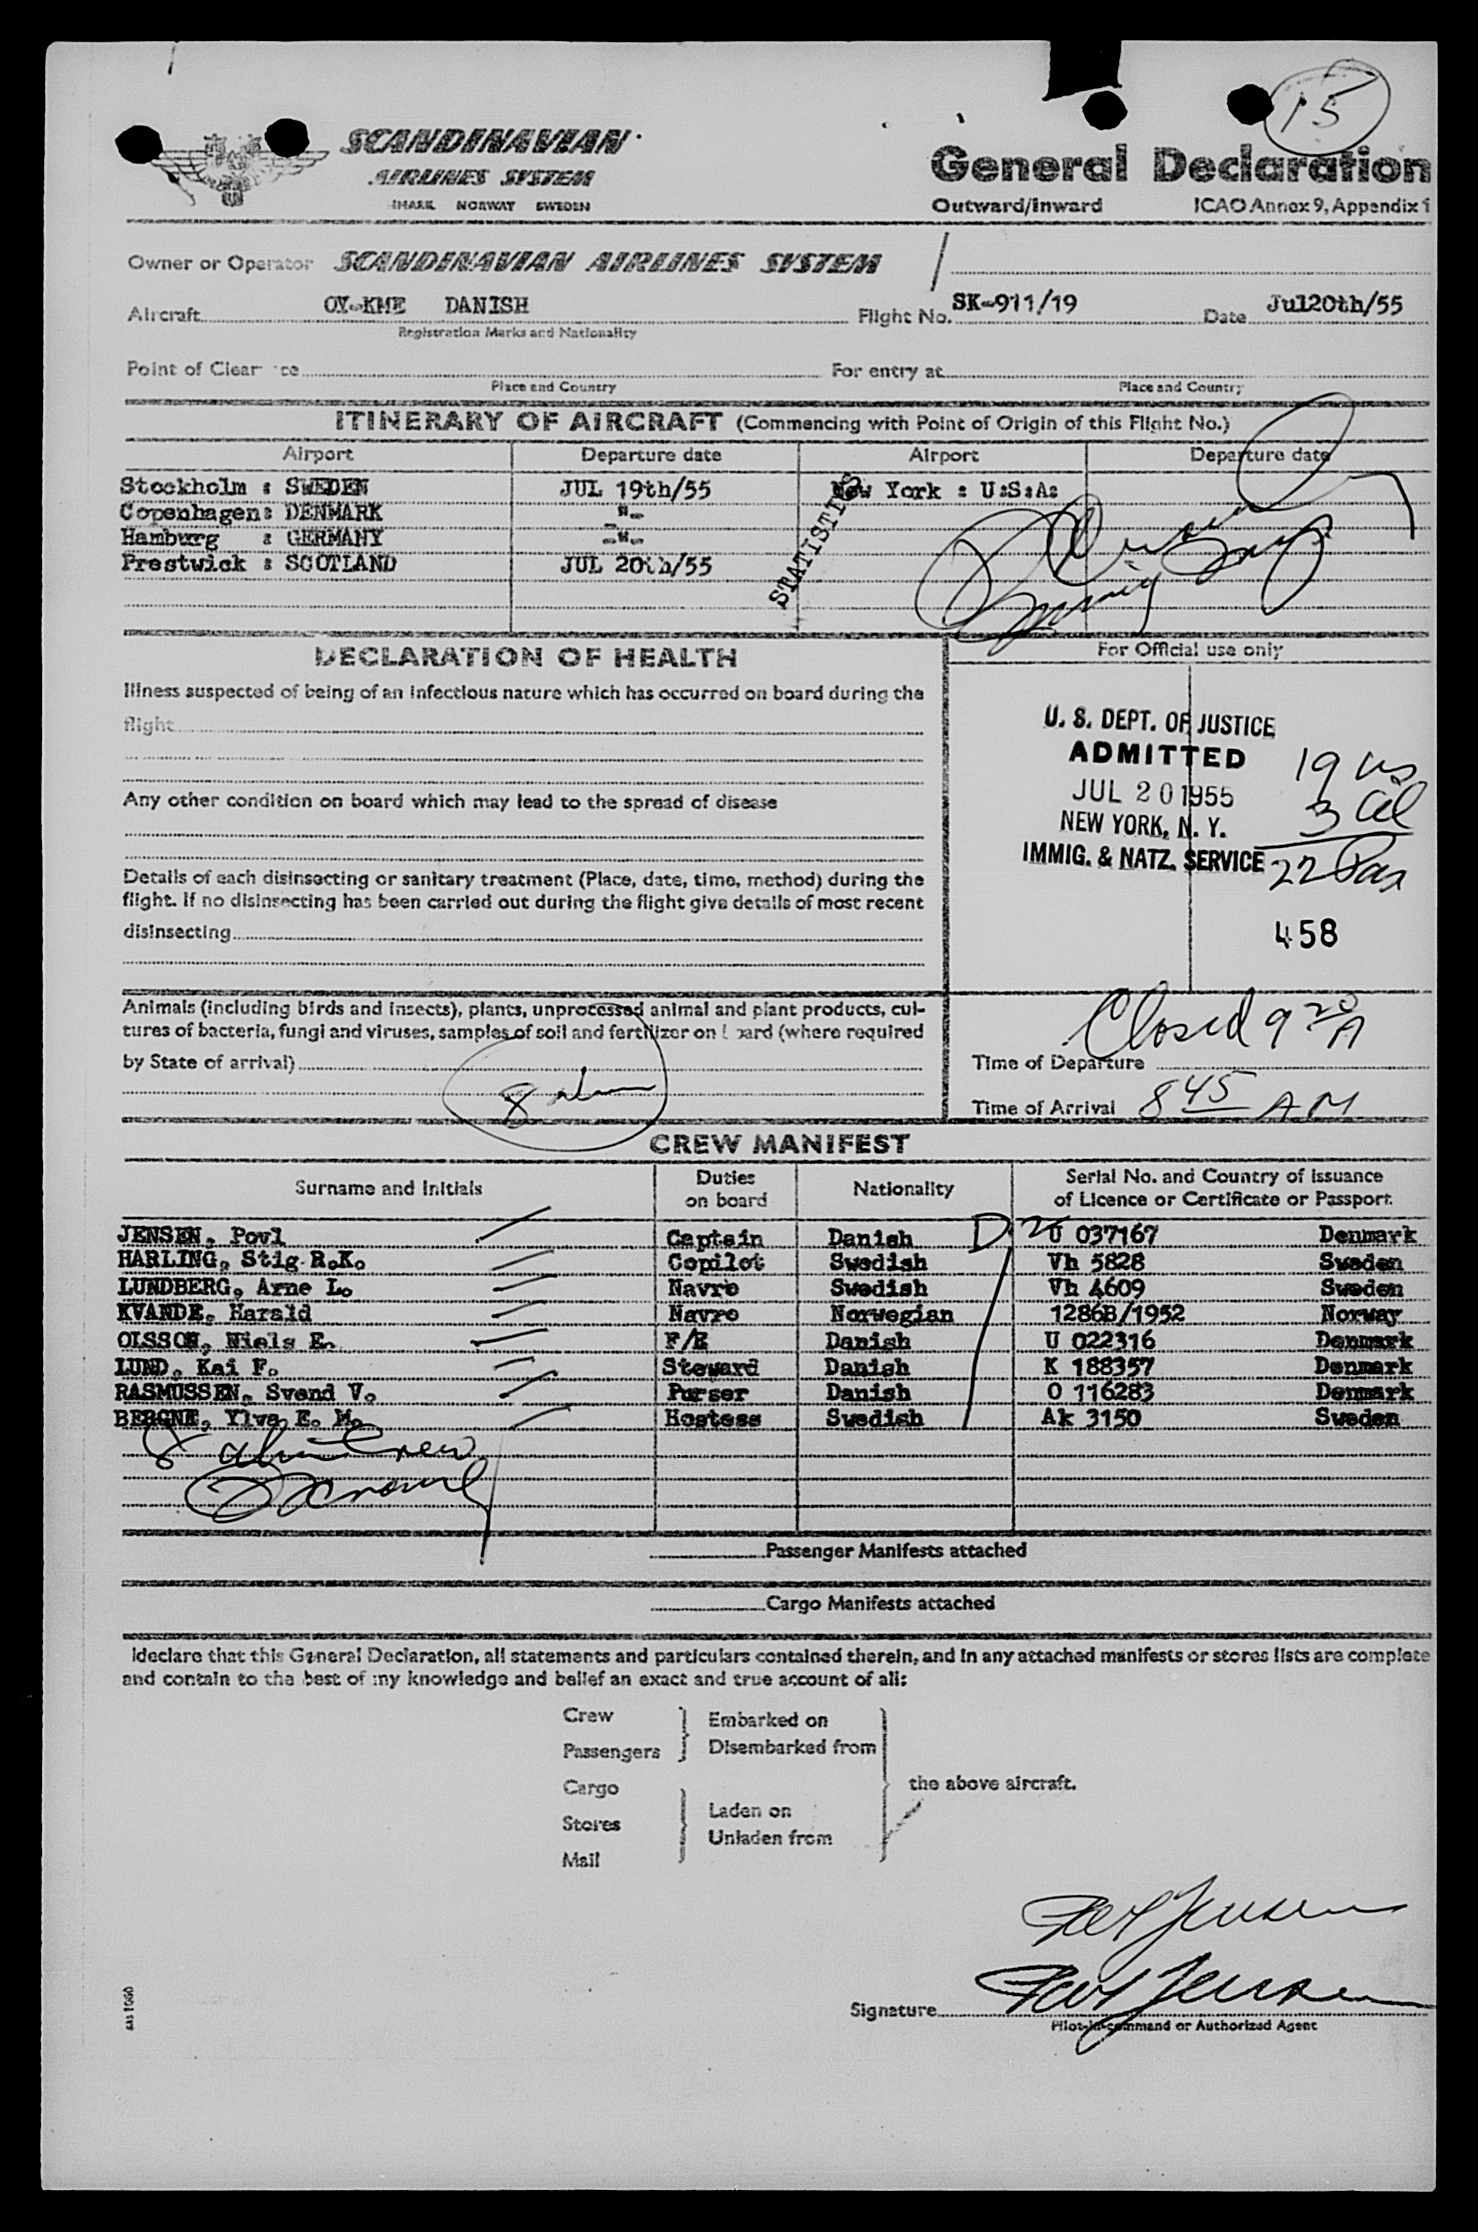 15
SCANDINAVIAN
AIRLINES SYSTEM
NMARK NORWAY SWEDEN
General Declaration
Outward/Inward ICAO Annex 9, Appendix 1
Owner or Operator SCANDINAVIAN AIRLINES SYSTEM
Aircraft OY-KME DANISH Flight No. SK-911/19 Date Jul20th/55
Registration Marks and Nationality
Point of Clear ce For entry at
Place and Country Place and Country
ITINERARY OF AIRCRAFT (Commencing with Point of Origin of this Flight No.)
Airport Departure date Airport Departure date
Stockholm : SWEDEN JUL 19th/55 New York : U:S:A:
Copenhagen: DENMARK -"-
Hamburg : GERMANY -"-
Prestwick : SCOTLAND JUL 20th/55
STATISTICS
DECLARATION OF HEALTH
For Official use only
Illness suspected of being of an infectious nature which has occurred on board during the
flight
Any other condition on board which may lead to the spread of disease
Details of each disinsecting or sanitary treatment (Place, date, time, method) during the
flight. If no disinsecting has been carried out during the flight give details of most recent
disinsecting
U. S. DEPT. OF JUSTICE
ADMITTED
JUL 20 1955
NEW YORK, N. Y.
IMMIG. & NATZ. SERVICE
19 us
3 al
22 Pax
458
Animals (including birds and insects), plants, unprocessed animal and plant products, cul-
tures of bacteria, fungi and viruses, samples of soil and fertilizer on board (where required
by State of arrival)
8
Closed 9 20 A
Time of Departure
Time of Arrival 8 45 AM
CREW MANIFEST
Surname and Initials Duties on board Nationality Serial No. and Country of Issuance of Licence or Certificate or Passport.
JENSEN, Povl Captain Danish D2 U 037167 Denmark
HARLING, Stig R.K. Copilot Swedish Vh 5828 Sweden
LUNDBERG, Arne L. Navro Swedish Vh 4609 Sweden
KVANDE, Harald Navro Norwegian 1286B/1952 Norway
OLSSON, Niels E. F/E Danish U 022316 Denmark
LUND, Kai F. Steward Danish K 188357 Denmark
RASMUSSEN, Svend V. Purser Danish O 116283 Denmark
BERGNE, Ylva E. M. Hostess Swedish Ak 3150 Sweden
8 alien Crew
Passenger Manifests attached
Cargo Manifests attached
I declare that this General Declaration, all statements and particulars contained therein, and in any attached manifests or stores lists are complete
and contain to the best of my knowledge and belief an exact and true account of all:
Crew
Passengers
Embarked on
Disembarked from
Cargo
Stores
Mail
Laden on
Unladen from
the above aircraft.
Povl Jensen
Povl Jensen
Signature
Pilot-in-command or Authorized Agent